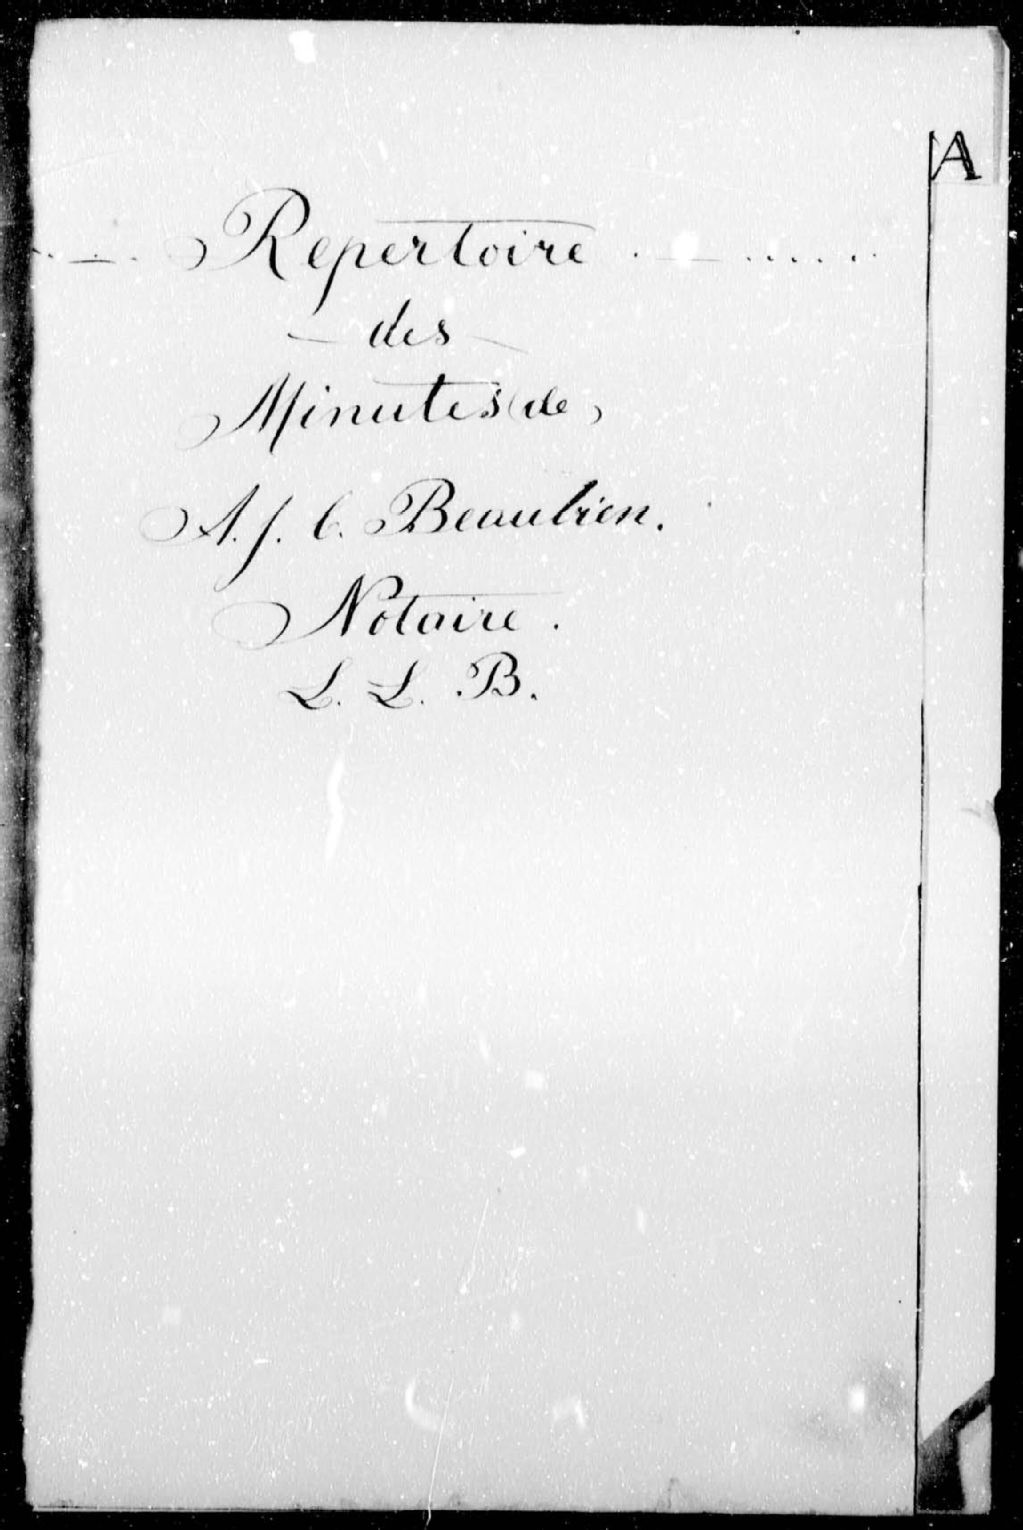 A
Repertoire
des
Minutes de
A. J. C. Beaubien.
Notaire.
L. L. B.